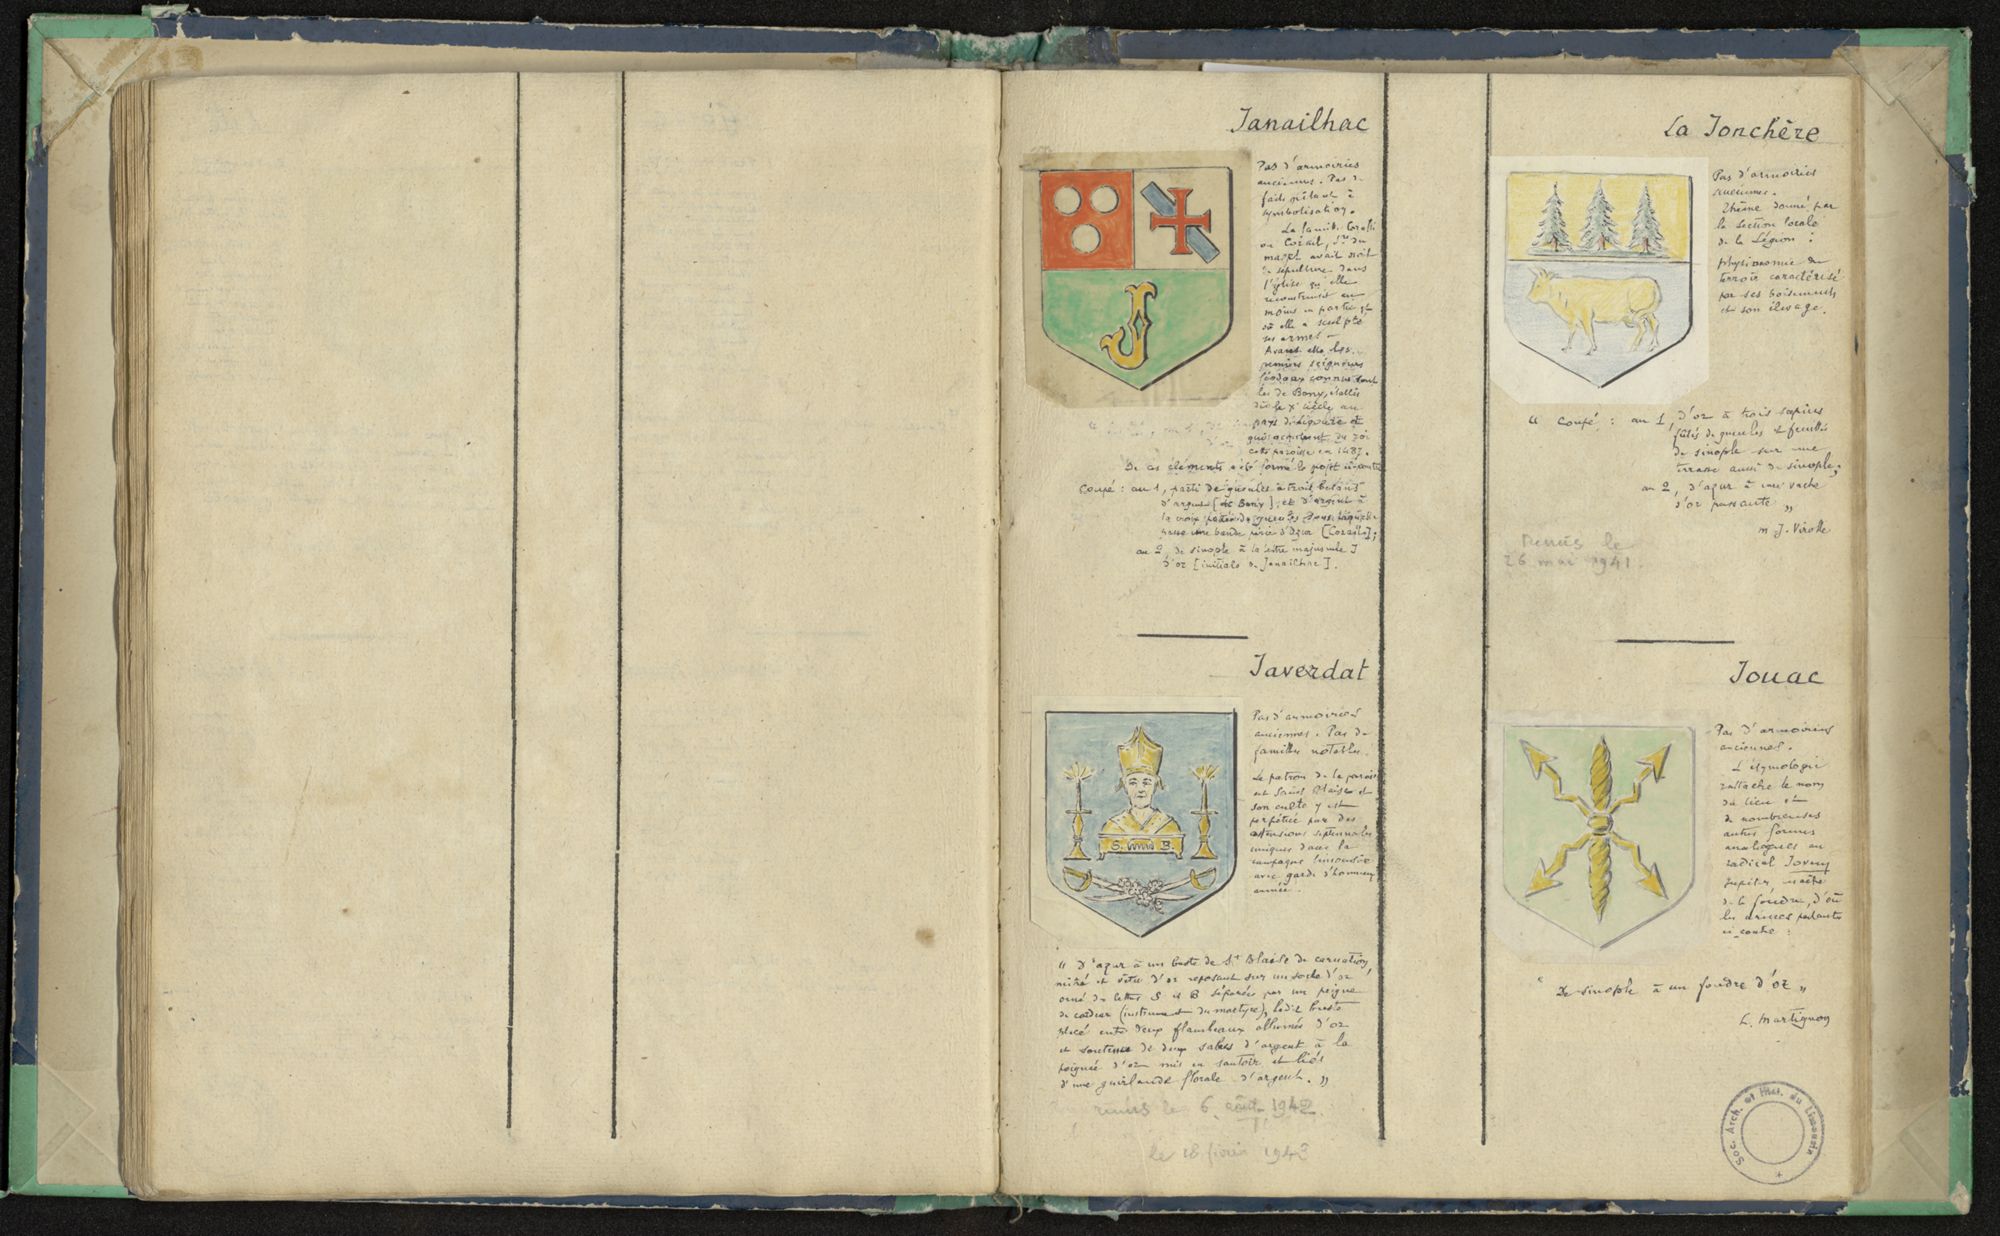 Janailhac
Pas d'armoiries
anciennes. Pas de
faits prêtant à
symbolisation.
La famille
ou Corail, Sr du
mazet avait droit
de sépulture dans
l'église qu'elle
reconstruisit au
moins en partie et
où elle a sculpté
ses armes
Avant elle les
premiers seigneurs
féodaux connus sont
les de Bony, établis
dès le Xe siècle au
pays
cette paroisse en 1487.
De ces éléments a été formé le projet ci-contre
Coupé : au 1, parti de gueules à trois besans
d'argent [de Bony]; et d'argent à
la croix pattée de gueules
une bande d'azur
au 2, de sinople à la lettre majuscule J
d'or [initiale de Janailhac].
J
Javerdat
Pas d'armoiries
anciennes. Pas de
familles notables.
Le patron de la paroisse
est Saint Blaise et
son culte y est
perpétué par des
ostensions septennales
uniques dans la
campagne limousine
avec garde d'honneur
armée.
S. B.
" D'azur à un buste de St Blaise de carnation,
mitré et vêtu d'or reposant sur un socle d'or
orné des lettres S et B séparées par un peigne
de cardeur (instrument du martyre), ledit buste
placé entre deux flambeaux allumés d'or
et soutenu de deux sabres d'argent à la
poignée d'or mis en sautoir et liés
d'une guirlande florale d'argent. "
remis le 6 août 1942
le 18 février 1943
La Jonchère
Pas d'armoiries
anciennes.
Thème donné par
la Section locale
de la Légion :
physionomie du
terroir caractérisé
par ses boisements
et son élevage.
" Coupé : au 1, d'or à trois sapins
fûtés de gueules et feuillés
de sinople sur une
terrasse aussi de sinople;
au 2, d'azur à une vache
d'or passante "
M. J. Virolle
Remis le
26 mai 1941.
Jouac
Pas d'armoiries
anciennes.
L'étymologie
rattache le nom
du lieu et
de nombreuses
autres formes
analogues au
radical Jovem
Jupiter, maître
de la foudre, d'où
les armes parlantes
ci-contre :
" De sinople à un foudre d'or "
L. Martignon
Soc. Arch. et Hist. du Limousin